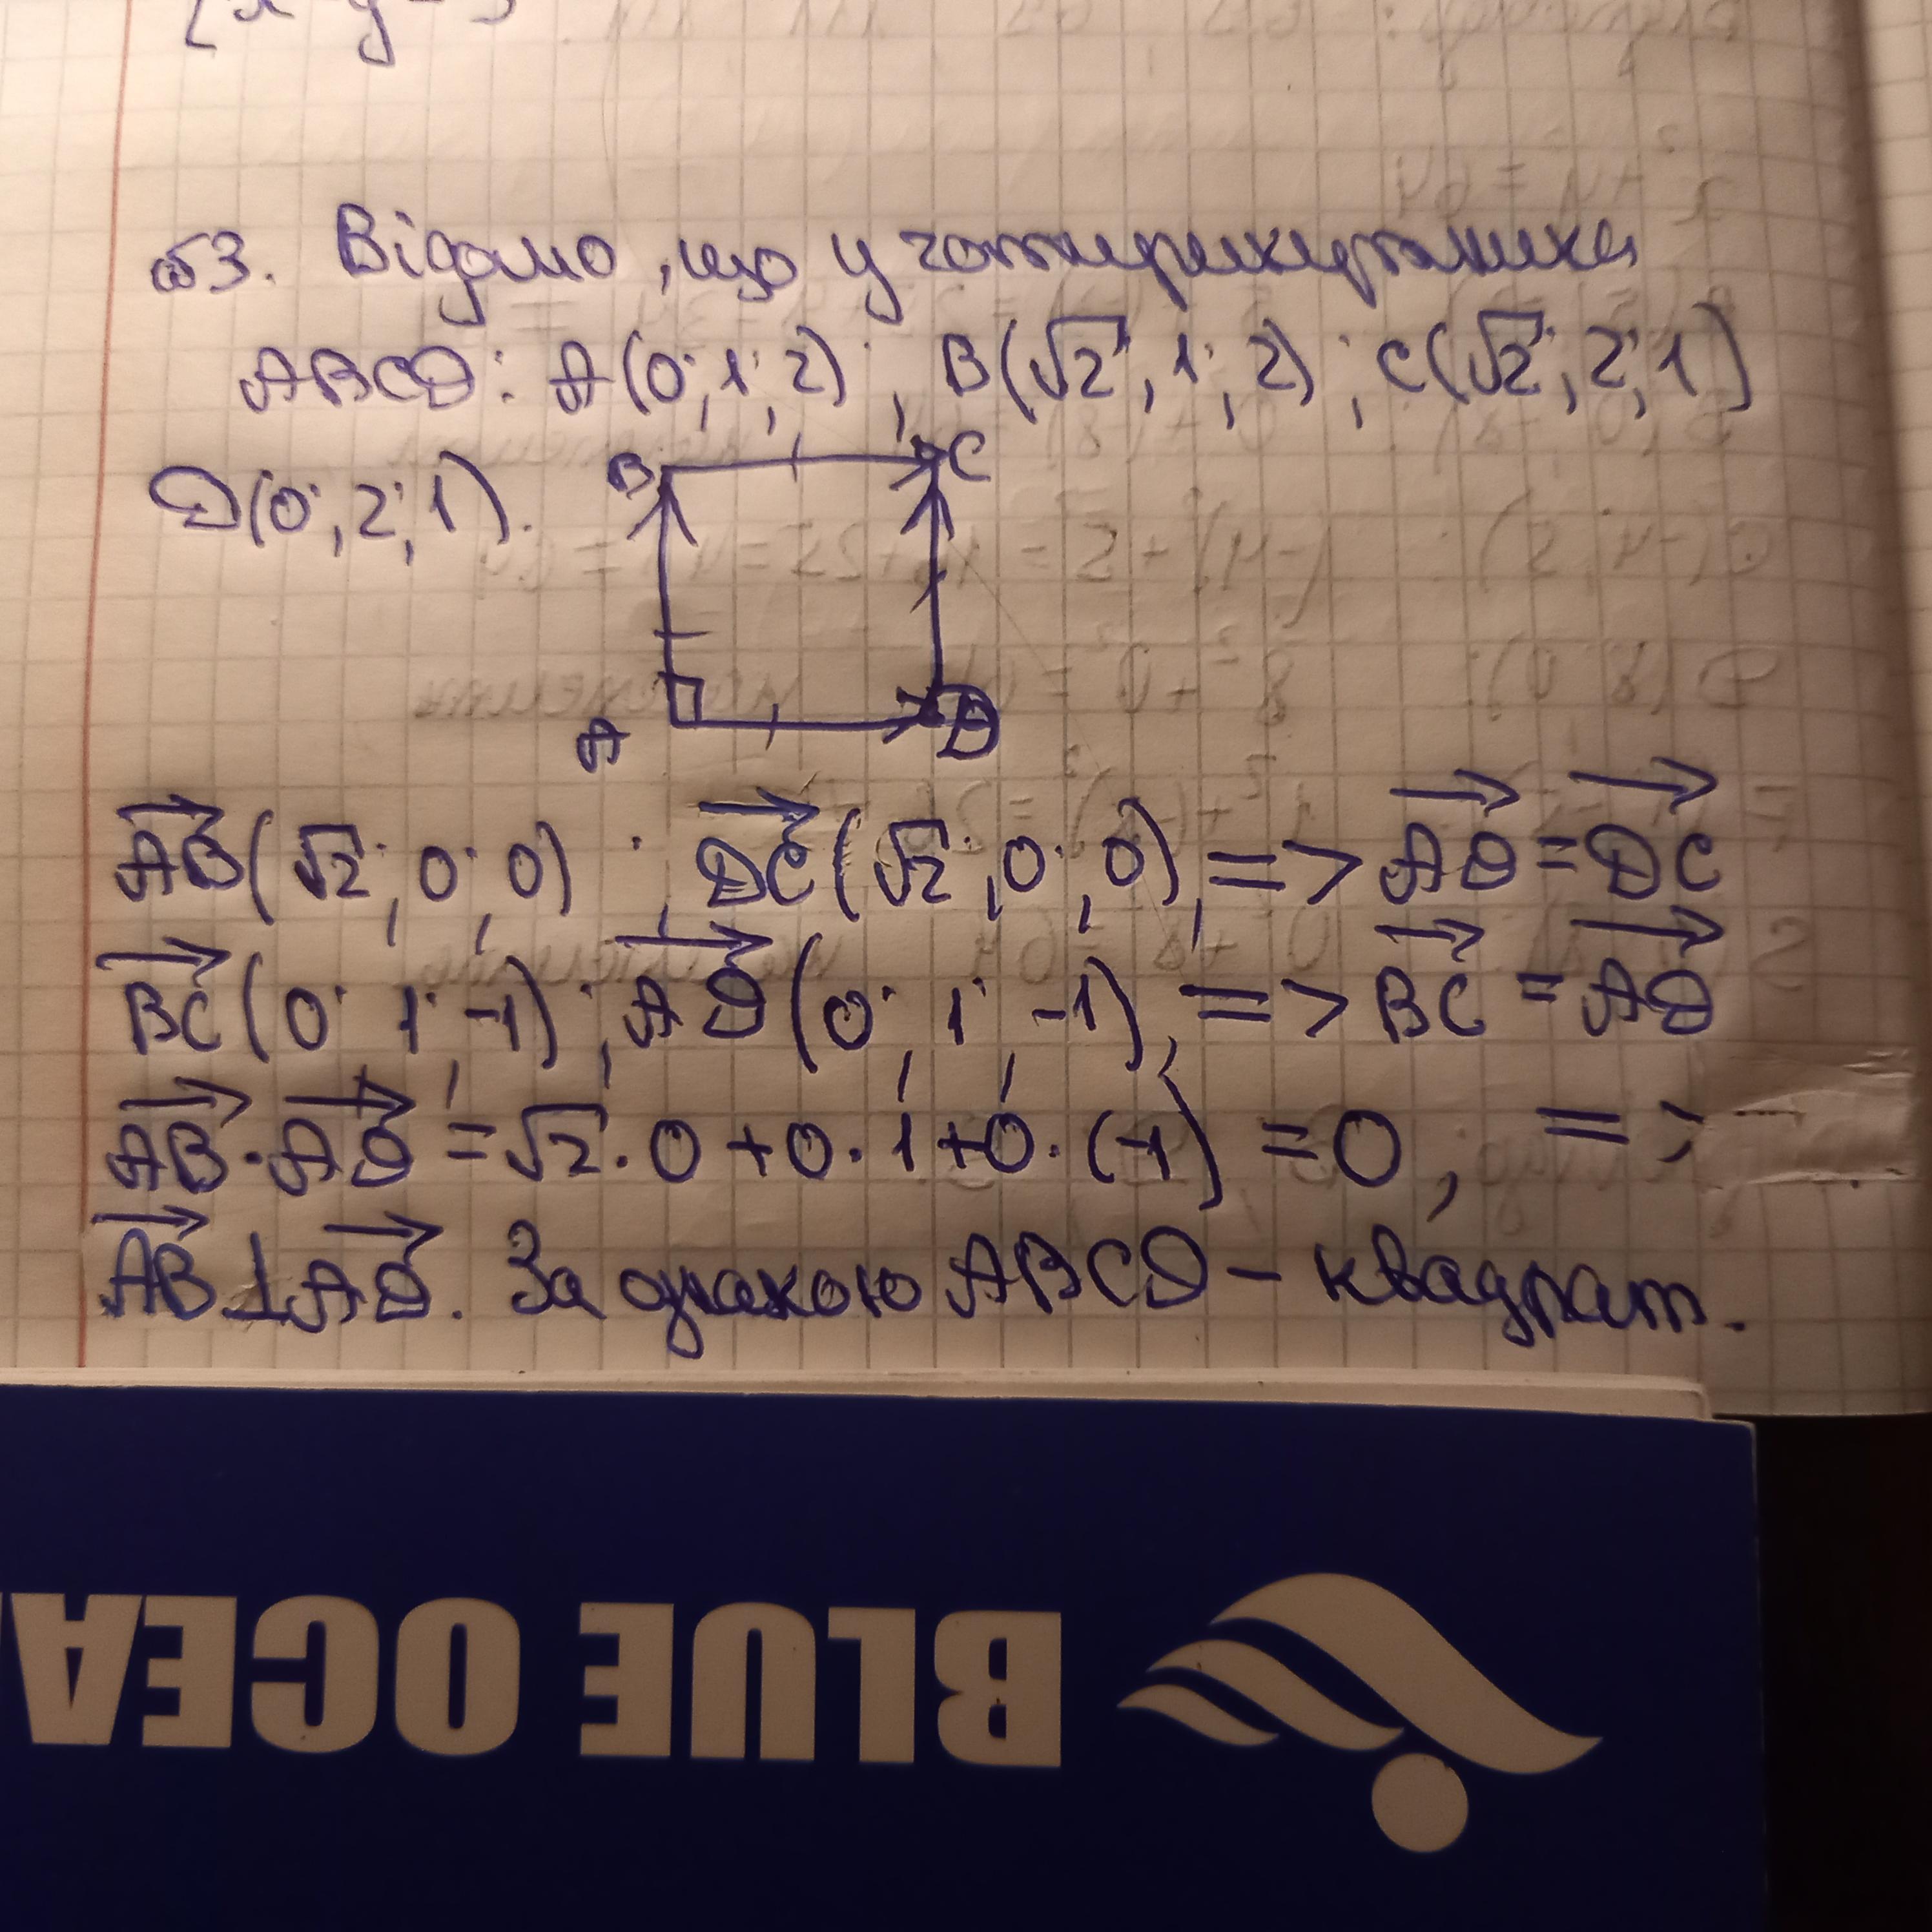 №3. Відомо, що у чотирикутника
ABCD: A(0; 1; 2); B(√2; 1; 2); C(√2; 2; 1)
D(0; 2; 1).
B C
A D
AB(√2; 0; 0); DC(√2; 0; 0), => AD = DC
BC(0; 1; -1); AD(0; 1; -1), => BC = AD
AB · AD = √2 · 0 + 0 · 1 + 0 · (-1) = 0, =>
AB ⊥ AD. За ознакою ABCD - квадрат.
BLUE OCEA